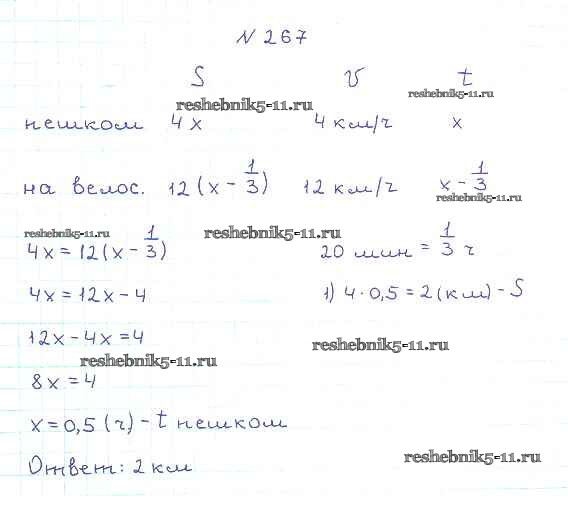 N 267
S v t
reshebnik5-11.ru reshebnik5-11.ru
пешком 4x 4 км/ч x
на велос. 12(x - 1/3) 12 км/ч x - 1/3
reshebnik5-11.ru
reshebnik5-11.ru reshebnik5-11.ru
4x = 12(x - 1/3) 20 мин = 1/3 ч
4x = 12x - 4 1) 4 · 0,5 = 2 (км) - S
12x - 4x = 4
reshebnik5-11.ru reshebnik5-11.ru
8x = 4
x = 0,5 (ч) - t пешком
Ответ: 2 км
reshebnik5-11.ru